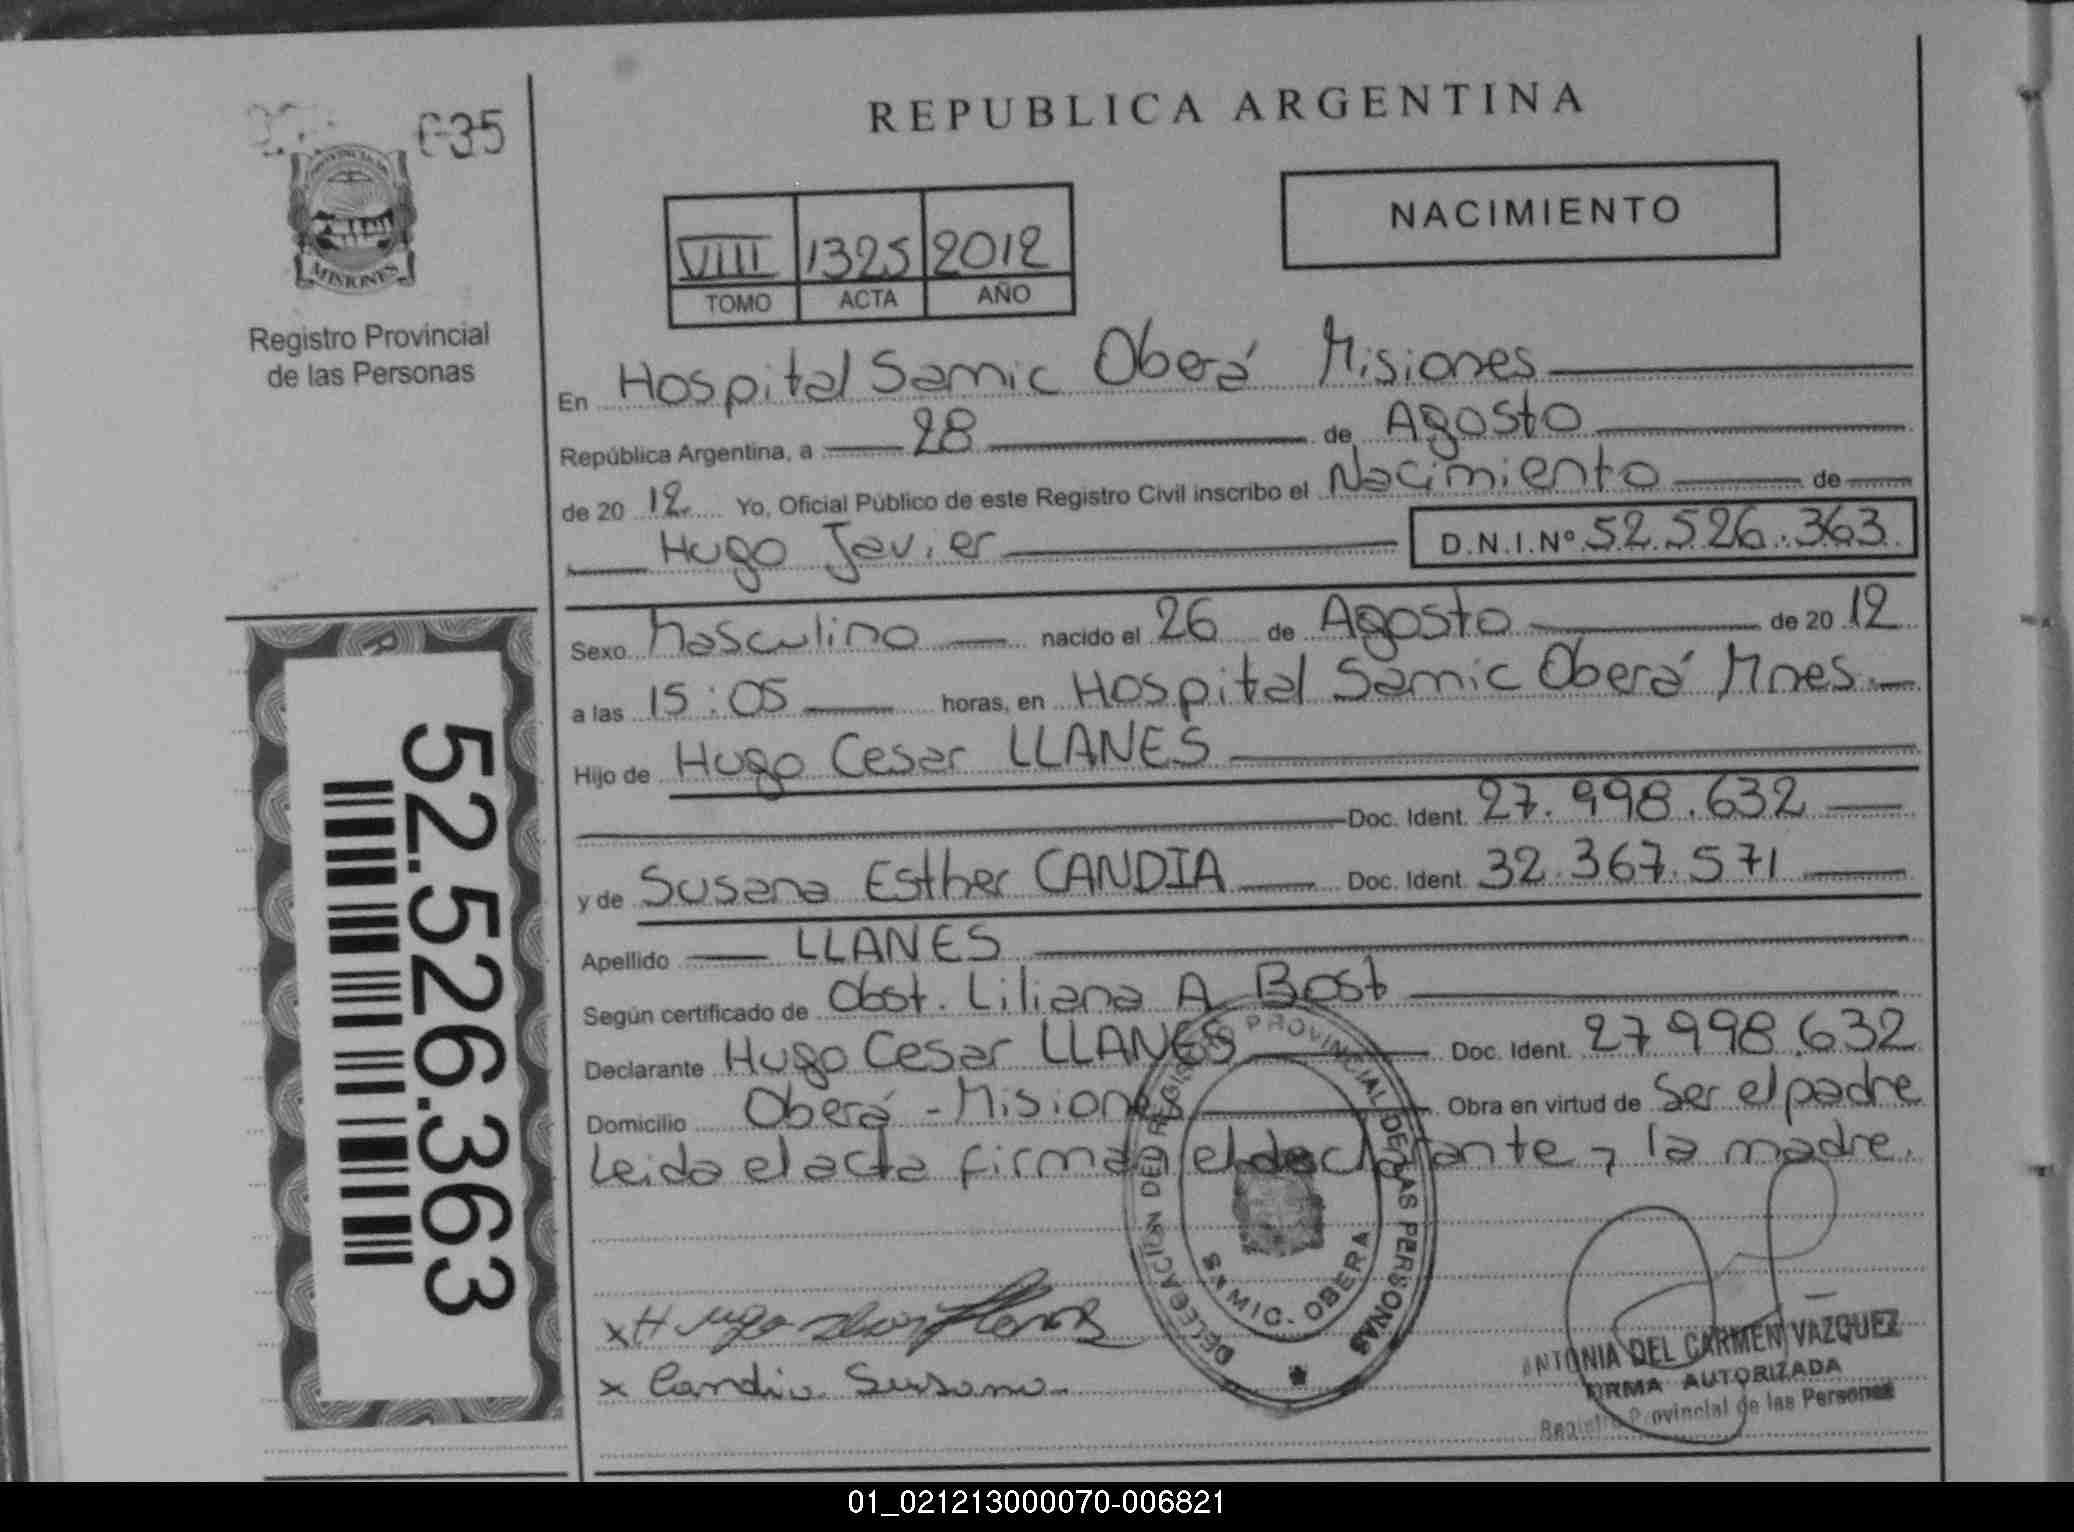 035
MISIONES
Registro Provincial
de las Personas
52.526.363
REPUBLICA ARGENTINA
NACIMIENTO
VIII 1325 2012
TOMO ACTA AÑO
En Hospital Samic Oberá Misiones
República Argentina, a 28 de Agosto
de 20 12. Yo, Oficial Público de este Registro Civil inscribo el Nacimiento de
Hugo Javier D.N.I.Nº 52.526.363
Sexo Masculino nacido el 26 de Agosto de 20 12
a las 15:05 horas, en Hospital Samic Oberá Mnes.
Hijo de Hugo Cesar LLANES
Doc. Ident. 27.998.632
y de Susana Esther CANDIA Doc. Ident. 32.367.571
Apellido LLANES
Según certificado de Obst. Liliana A Bost
Declarante Hugo Cesar LLANES Doc. Ident. 27998.632
Domicilio Oberá - Misiones Obra en virtud de Ser el padre
Leida el acta firman el declarante y la madre.
DELEGACION DEL REGISTRO PROVINCIAL DE LAS PERSONAS
SAMIC. OBERA
x Hugo
x Candia Susana
ANTONIA DEL CARMEN VAZQUEZ
FIRMA AUTORIZADA
Registro Provincial de las Personas
01_021213000070-006821